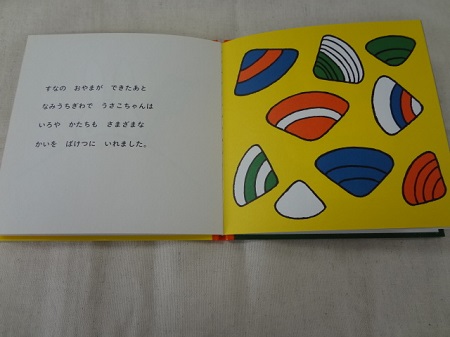 すなの おやまが できたあと
なみうちぎわで うさこちゃんは
いろや かたちも さまざまな
かいを ばけつに いれました。